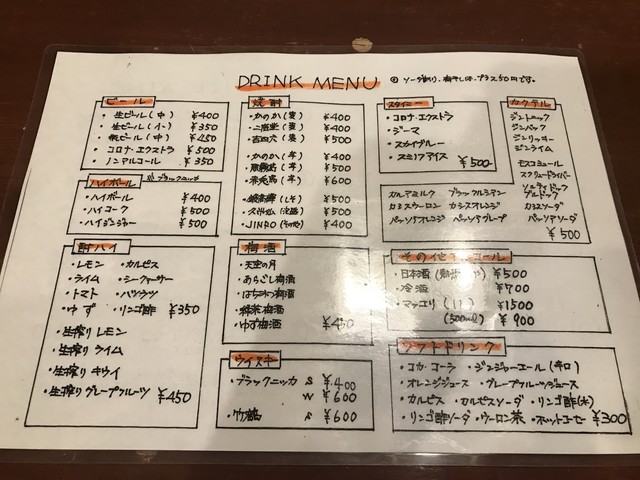 DRINK MENU
ビール
・生ビール(中) ¥400
・生ビール(小) ¥350
・瓶ビール(中) ¥450
・コロナ・エクストラ ¥500
・ノンアルコール ¥350
ハイボール
・ハイボール ¥400
・ハイコーク ¥500
・ハイジンジャー ¥500
酎ハイ
・レモン ・カルピス
・ライム ・シークァーサー
・トマト ・ハツラツ
・ゆず ・リンゴ酢 ¥350
・生搾りレモン
・生搾りライム
・生搾りキウイ
・生搾りグレープフルーツ ¥450
焼酎
・かのか(麦) ¥400
・二階堂(麦) ¥400
・吉四六(麦) ¥500
・かのか(芋) ¥400
・黒霧島(芋) ¥500
・赤兎馬(芋) ¥600
・鍛高譚(しそ) ¥500
・久米仙(泡盛) ¥500
・JINRO(その他) ¥400
梅酒
・天空の月
・あらごし梅酒
・はちみつ梅酒
・緑茶梅酒
・ゆず梅酒 ¥450
ウイスキー
・ブラックニッカ S ¥400
W ¥600
・竹鶴 S ¥600
・コロナ・エクストラ
・ジーマ
・スカイブルー
・スミノフアイス ¥500
カクテル
ジントニック
ジンバック
ジンリッキー
ジンライム
モスコミュール
スクリュードライバー
ソルティドッグ
ブルドック
カルアミルク ブラックルシアン
カシスウーロン カシスオレンジ カシスソーダ
パッソアオレンジ パッソアグレープ パッソアソーダ
¥500
・日本酒 ¥500
・冷酒 ¥700
・マッコリ(1L) ¥1500
(500ml) ¥900
ソフトドリンク
・コカ・コーラ ・ジンジャーエール(辛口)
・オレンジジュース ・グレープフルーツジュース
・カルピス ・カルピスソーダ ・リンゴ酢(水)
・リンゴ酢ソーダ ・ウーロン茶 ・ホットコーヒー ¥300